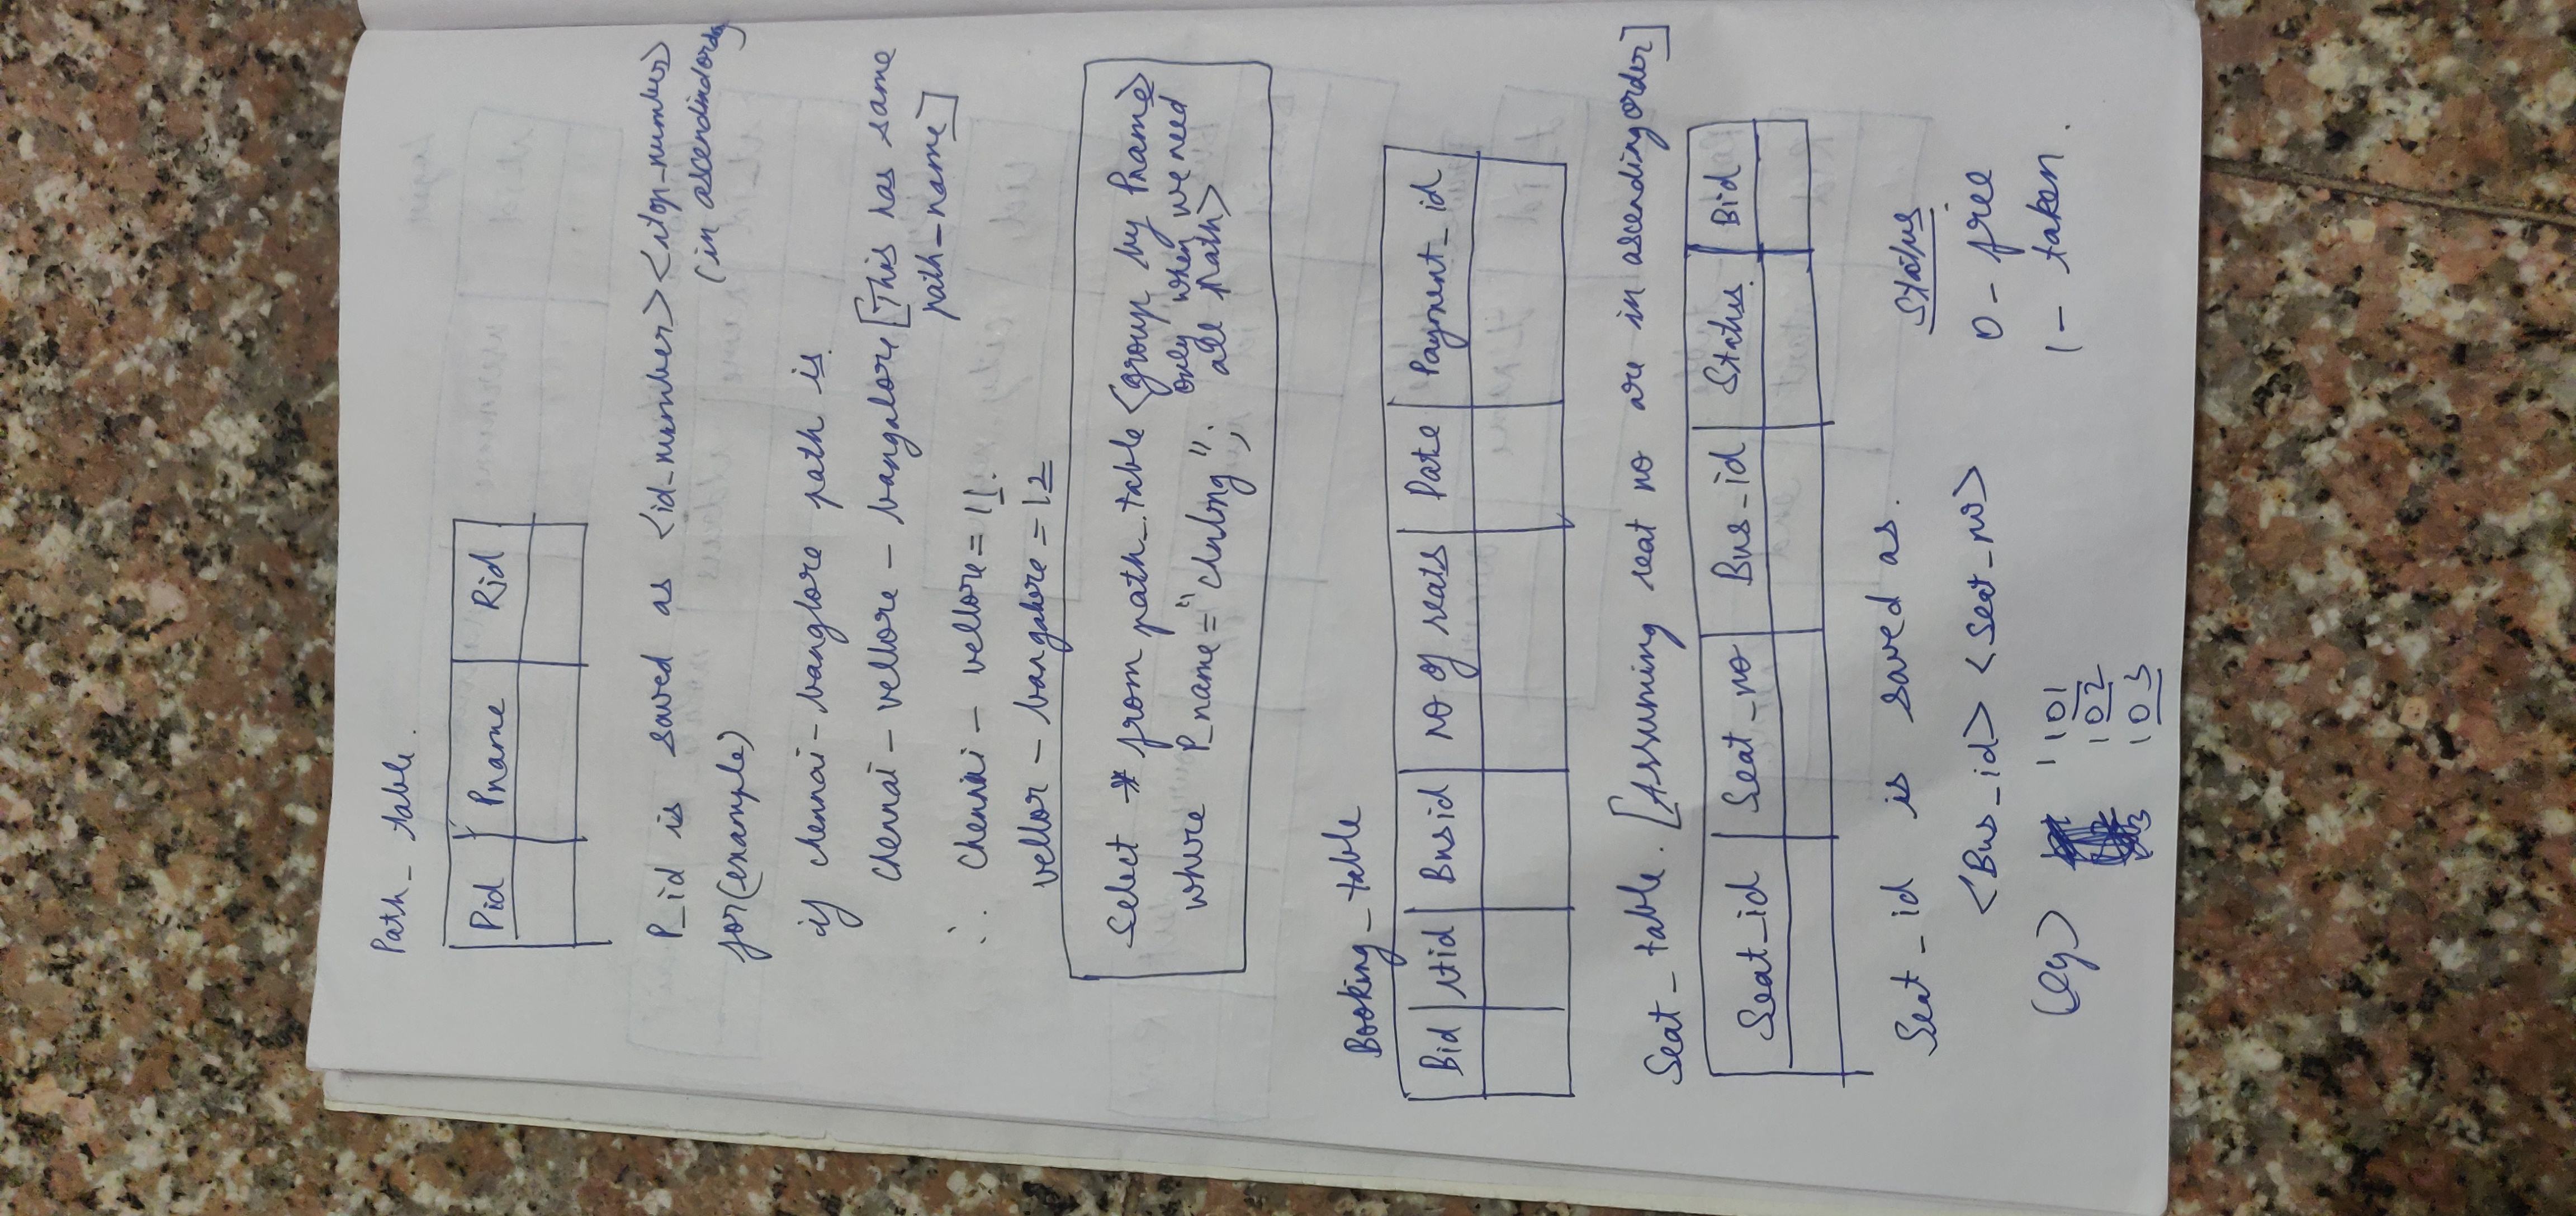 Path_ table.
Pid Pname Rid
P_id is saved as <id_number><stop_number>
(in ascendind order
for(example)
if chennai - banglore path is
chennai - vellore - bangalore [This has same
path_name]
∴ Chennai - vellore = 11.
vellor - bangalore = 12
Select * from path_table <group by Pname>
where P_name = "chnbng"; only when we need
all path>
Booking_table
Bid stid Busid no of seats Date Payment_id
Seat_table. [Assuming seat no are in ascending order]
Seat_id Seat_no Bus_id Status Bid
Seat_id is saved as.
<Bus_id> <Seat_no>
(eg) 101
102
103
Status
0 - free
1 - taken.